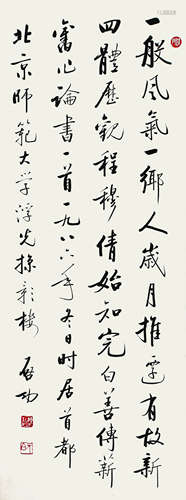 一般风气一乡人岁月推迁有故新
四體歷觀程穆倩始知完白善傳薪
舊作論書一首一九八六年冬日時居首都
北京師範大学浮光掠影樓 启功